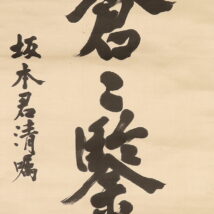 蒼々
坂本君清嘱